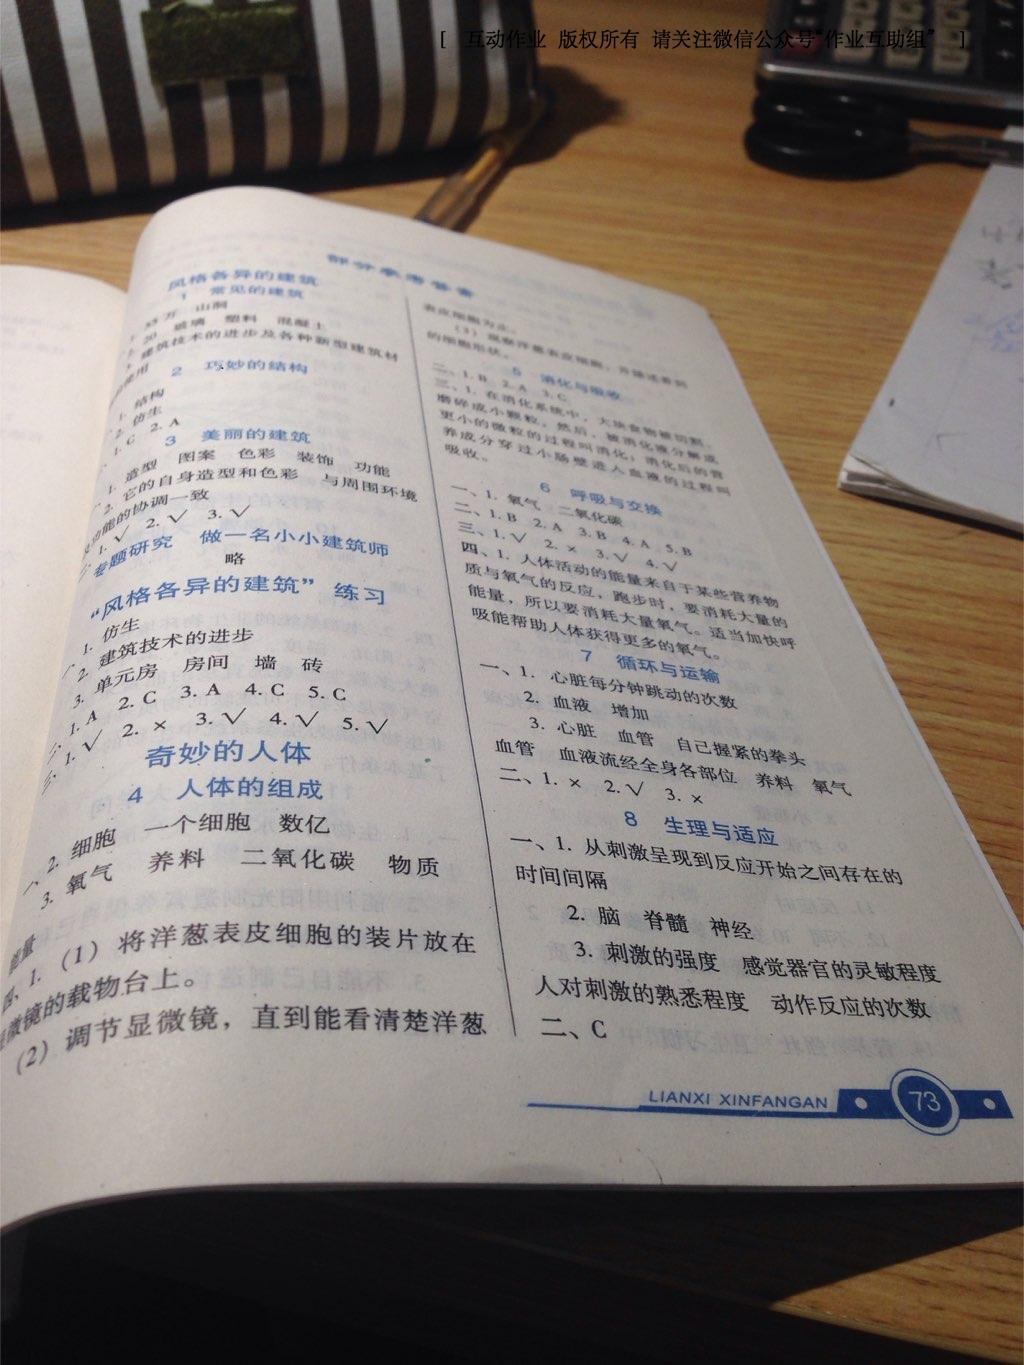 [ 互动作业 版权所有 请关注微信公众号“作业互助组” ]
部分参考答案
风格各异的建筑
1 常见的建筑
山洞
玻璃 塑料 混凝土
建筑技术的进步及各种新型建筑材
使用
2 巧妙的结构
1. 结构
2. 仿生
1. C 2. A
3 美丽的建筑
1. 造型 图案 色彩 装饰 功能
2. 它的自身造型和色彩 与周围环境
及功能的协调一致
1. √ 2. √ 3. √
专题研究 做一名小小建筑师
略
“风格各异的建筑” 练习
1. 仿生
2. 建筑技术的进步
3. 单元房 房间 墙 砖
1. A 2. C 3. A 4. C 5. C
三、1. √ 2. × 3. √ 4. √ 5. √
奇妙的人体
4 人体的组成
一、2. 细胞 一个细胞 数亿
3. 氧气 养料 二氧化碳 物质
能量
四、1. (1) 将洋葱表皮细胞的装片放在
显微镜的载物台上。
(2) 调节显微镜，直到能看清楚洋葱
表皮细胞为止。
(3) 观察洋葱表皮细胞，并描述看到
的细胞形状。
5 消化与吸收
二、1. B 2. A 3. C
三、1. 在消化系统中，大块食物被切割、
磨碎成小颗粒，然后，被消化液分解成
更小的微粒的过程叫消化；消化后的营
养成分穿过小肠壁进入血液的过程叫
吸收。
6 呼吸与交换
一、1. 氧气 二氧化碳
二、1. B 2. A 3. B 4. A 5. B
三、1. √ 2. × 3. √ 4. √
四、1. 人体活动的能量来自于某些营养物
质与氧气的反应，跑步时，要消耗大量的
能量，所以要消耗大量氧气。适当加快呼
吸能帮助人体获得更多的氧气。
7 循环与运输
一、1. 心脏每分钟跳动的次数
2. 血液 增加
3. 心脏 血管 自己握紧的拳头
血管 血液流经全身各部位 养料 氧气
二、1. × 2. √ 3. ×
8 生理与适应
一、1. 从刺激呈现到反应开始之间存在的
时间间隔
2. 脑 脊髓 神经
3. 刺激的强度 感觉器官的灵敏程度
人对刺激的熟悉程度 动作反应的次数
二、C
LIANXI XINFANGAN 73